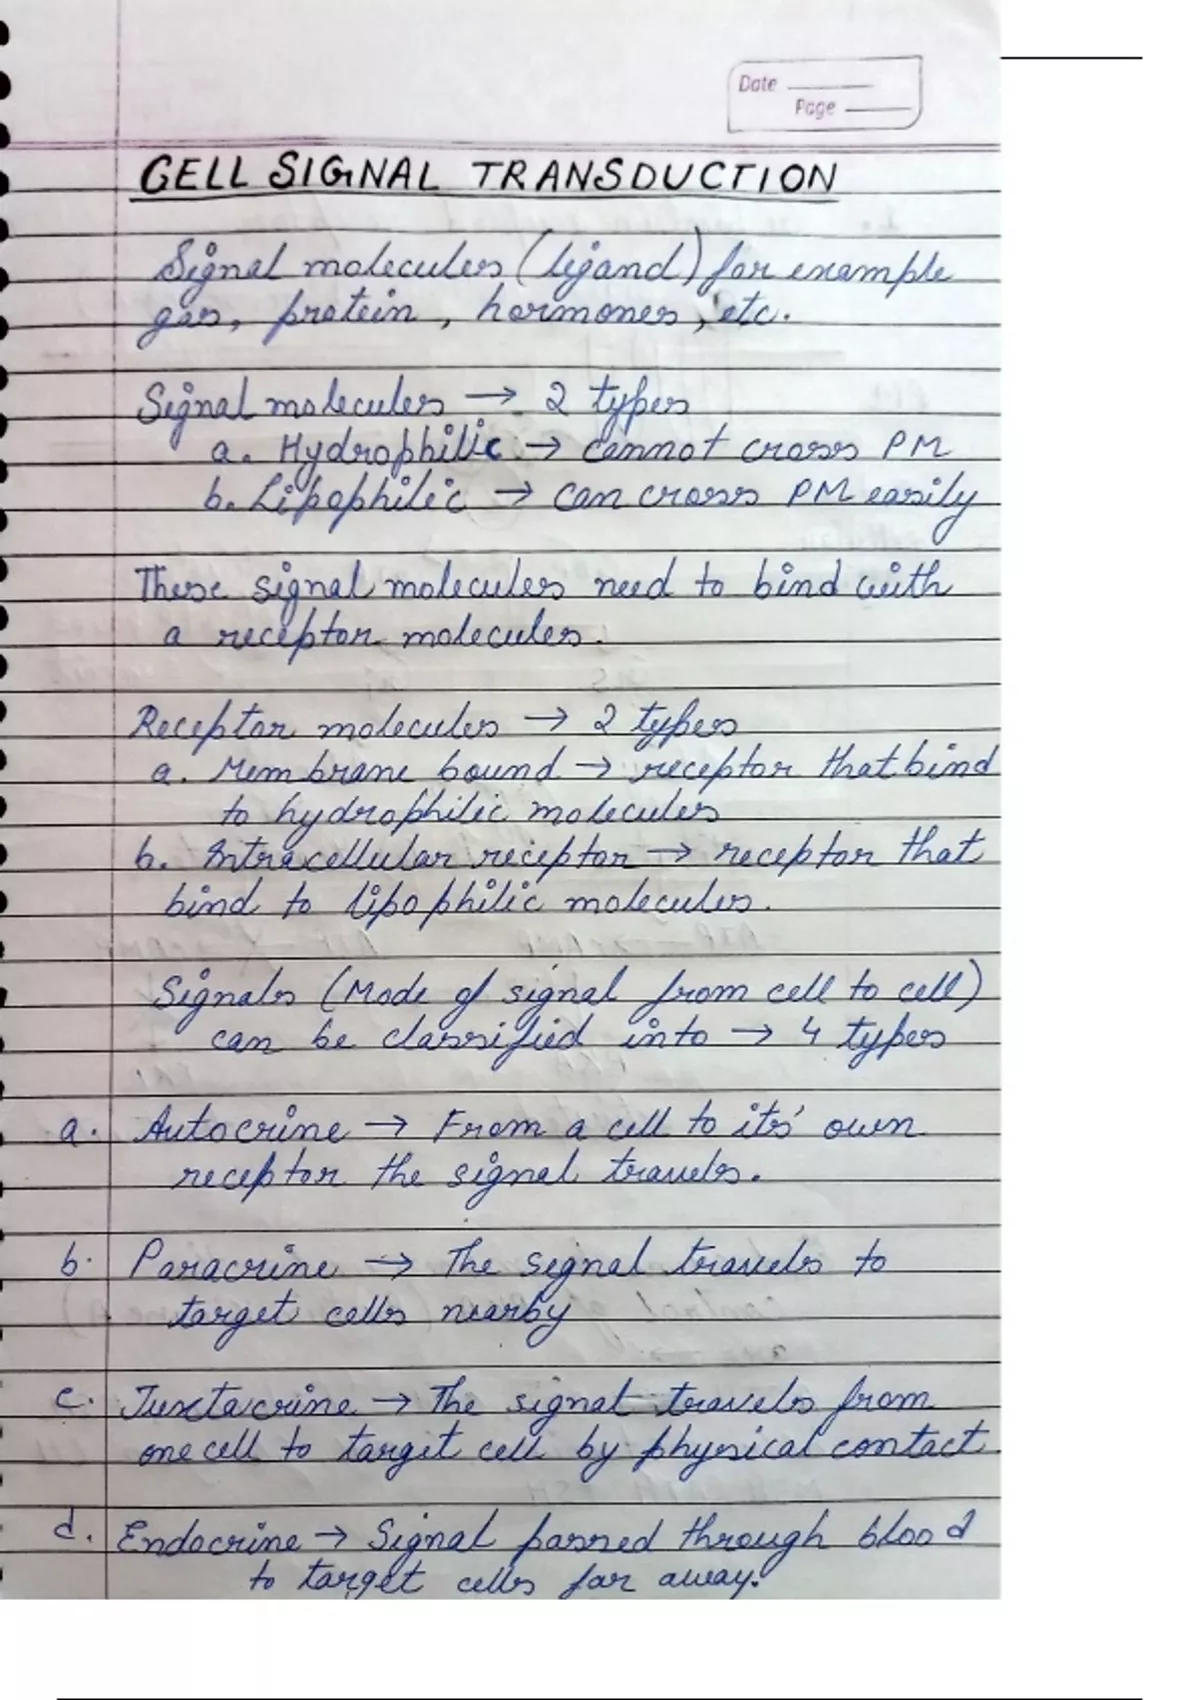 Date
Page
CELL SIGNAL TRANSDUCTION
Signal molecules (ligand) for example
gas, protein, hormones, etc.
Signal molecules → 2 types
a. Hydrophilic → cannot cross PM
b. Lipophilic → can cross PM easily
These signal molecules need to bind with
a receptor molecules.
Receptor molecules → 2 types
a. Membrane bound → receptor that bind
to hydrophilic molecules
b. Intracellular receptor → receptor that
bind to lipophilic molecules.
Signals (Mode of signal from cell to cell)
can be classified into → 4 types
a. Autocrine → From a cell to its' own
receptor the signal travels.
b. Paracrine → The signal travels to
target cells nearby
c. Juxtacrine → The signal travels from
one cell to target cell by physical contact
d. Endocrine → Signal passed through blood
to target cells far away.